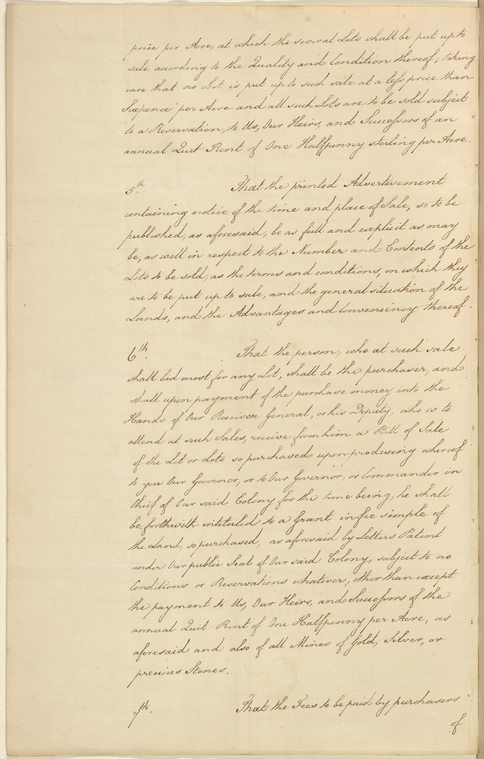 price per Acre, at which the several Lots shall be put up to
sale according to the Quality and Condition thereof; taking
care that no Lot is put up to such sale at a less price than
Sixpence per Acre and all such Lots are to be sold subject
to a Reservation, to Us, Our Heirs, and Successors of an
annual Quit Rent of One Halfpenny sterling per Acre.
5th. That the printed Advertisement
containing notice of the time and place of Sale, so to be
published, as aforesaid, be as full and explicit as may
be, as well in respect to the Number and Contents of the
Lots to be sold, as the terms and conditions, on which they
are to be put up to sale, and the general situation of the
Lands, and the Advantages and Conveniency thereof.
6th. That the person, who at such sale
shall bid most for any Lot, shall be the purchaser, and
shall upon payment of the purchase money into the
Hands of Our Receiver General, or his Deputy, who is to
attend at such Sales, receive from him a Bill of Sale
of the Lot or Lots so purchased upon producing whereof
to you Our Governor, or to Our Governor, or Commander in
Chief of Our said Colony for the time being, he shall
be, forthwith intituled to a Grant in fee simple of
the Land, so purchased, as aforesaid by Letters Patent
under Our public Seal of Our said Colony, subject to no
Conditions or Reservations whatever, other than except
the payment to Us, Our Heirs, and Successors of the
annual Quit-Rent of One Halfpenny per Acre, as
aforesaid and also of all Mines of Gold, Silver, or
precious Stones.
7th. That the Fees to be paid by purchasers
of